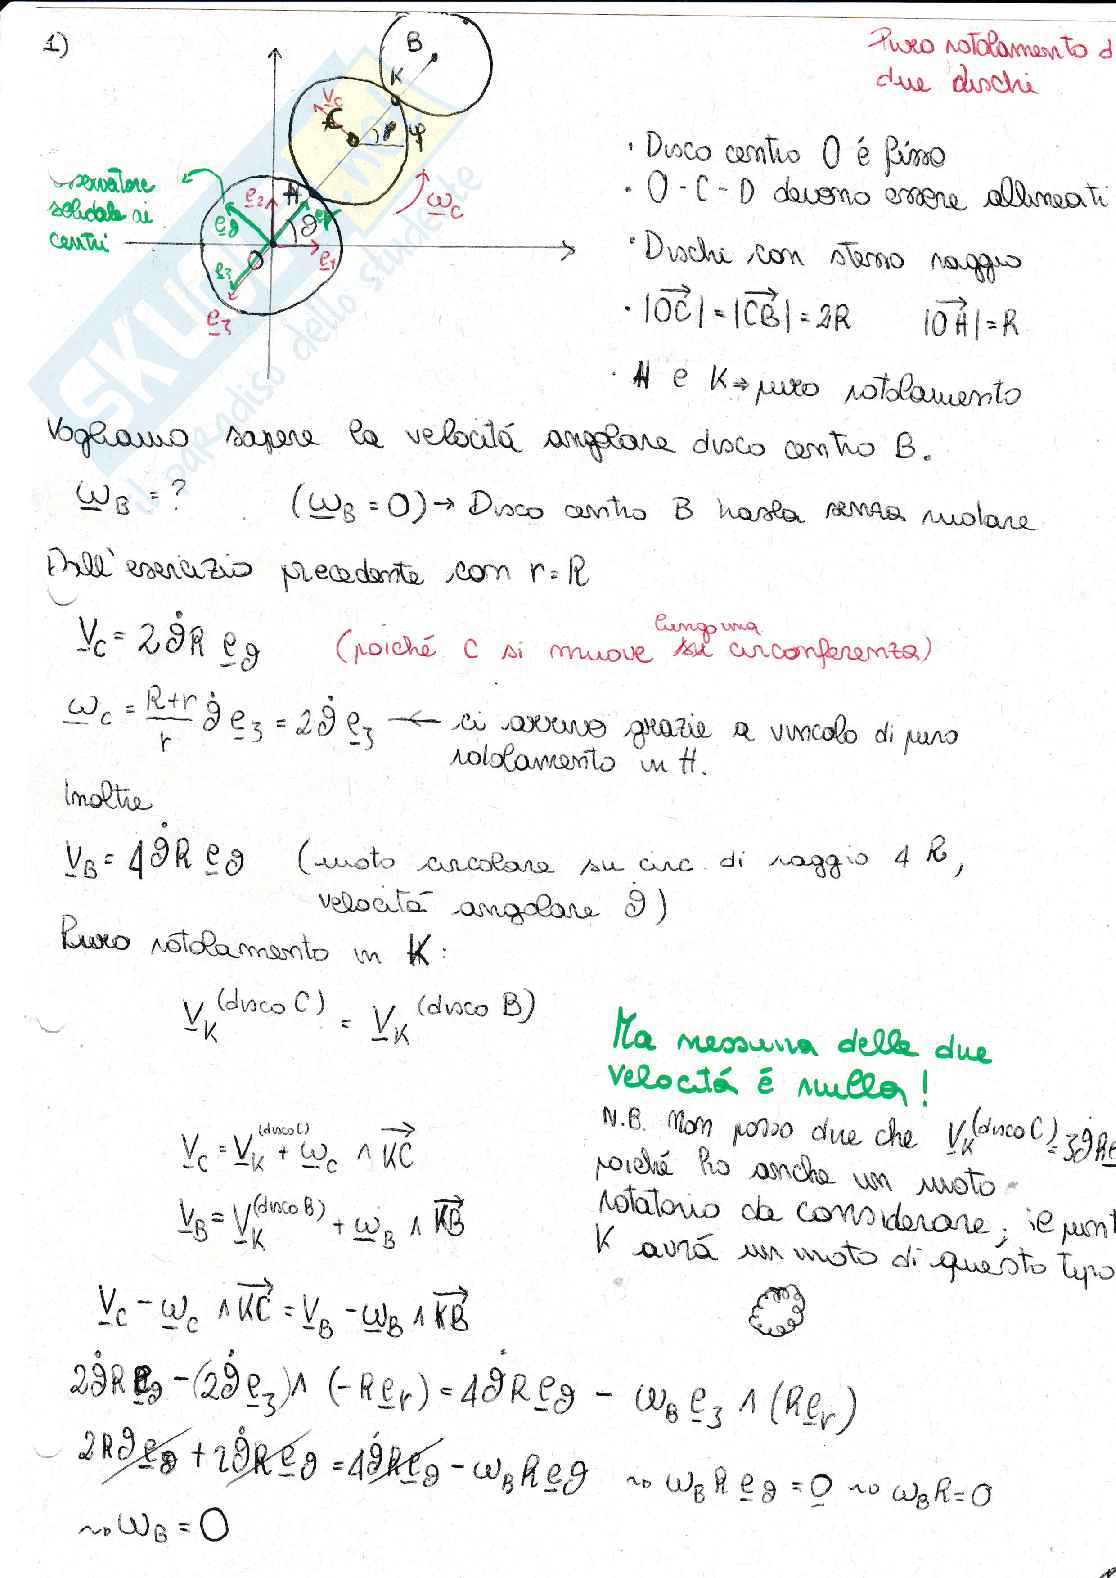 1)
Puro rotolamento d
due dischi
B
K
V_C
C
φ
ω_C
H
e_2
e_ϑ
e_r
ϑ
e_1
O
e_3
e_3
osservatore
solidale ai
centri
SKUola.net
il paradiso dello studente
· Disco centro O é fisso
· O - C - D devono essere allineati
· Dischi con stesso raggio
· |OC| = |CB| = 2R   |OH| = R
· H e K → puro rotolamento
Vogliamo sapere la velocitá angolare disco centro B.
ω_B = ?   (ω_B = 0) → Disco centro B trasla senza ruotare
Dall'esercizio precedente con r = R
V_C = 2ϑ̇R e_ϑ   (poiché C si muove lungo una su circonferenza)
ω_C = (R+r)/r ϑ̇ e_3 = 2ϑ̇ e_3 ← ci arrivo grazie a vincolo di puro
rotolamento in H.
Inoltre
V_B = 4ϑ̇R e_ϑ   (moto circolare su circ. di raggio 4R,
velocitá angolare ϑ̇)
Puro rotolamento in K:
V_K^(disco C) = V_K^(disco B)
Ma nessuna delle due
velocitá é nulla!
N.B. Non posso dire che V_K^(disco C) = 3ϑ̇R e
poiché ho anche un moto
rotatorio da considerare; il punt
K avrá un moto di questo tipo
V_C = V_K^(disco C) + ω_C ∧ KC
V_B = V_K^(disco B) + ω_B ∧ KB
V_C - ω_C ∧ KC = V_B - ω_B ∧ KB
2ϑ̇R e_ϑ - (2ϑ̇ e_3) ∧ (-R e_r) = 4ϑ̇R e_ϑ - ω_B e_3 ∧ (R e_r)
2Rϑ̇ e_ϑ + 2ϑ̇R e_ϑ = 4ϑ̇R e_ϑ - ω_B R e_ϑ ⇝ ω_B R e_ϑ = 0 ⇝ ω_B R = 0
⇝ ω_B = 0